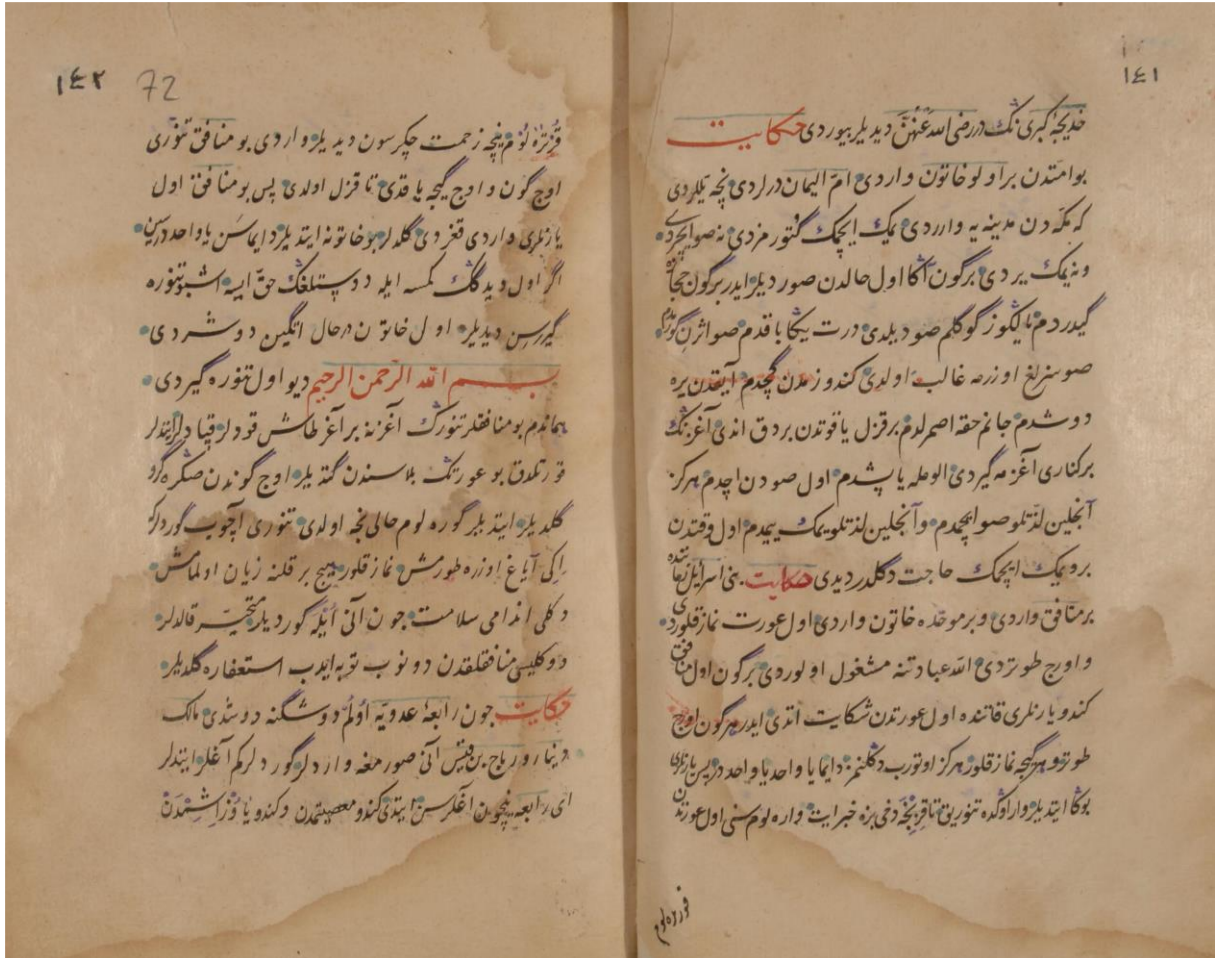 ١٤١
خديجۀ كبرى نك در رضى الله عنهن ديديلر بيوردى حكايت
بو امتدن بر اولو خاتون واردى امّ اليمان درلردى نچه ييللردى
كه مكه دن مدينه يه وارردى يمك ايچمك گتورمزدى نه صو ايچردى
و نه يمك يردى برگون آكا اول حالدن صورديلر ايدر برگون حجازه
گيدردم يالكوز گوكلم صو ديلدى درت يكا باقدم صو اثرن گورمدم
صوسزلغ اوزرمه غالب اولدى كندوزمدن گچدم آيقدن يره
دوشدم جانم حقه اصمرلدم بر قزل ياقوتدن بردق اندى آغزنك
بر كنارى آغزمه گيردى الومله ياپشدم اول صودن ايچدم هركز
آنجلين لذتلو صو ايچمدم و آنجلين لذتلو يمك ييمدم اول وقتدن
برو يمك ايچمك حاجت دكلدر ديدى حكايت بنى اسرائيل زماننده
بر منافق واردى و بر موحّده خاتون واردى اول عورت نماز قلوردى
و اورج طوتردى الله عبادتنه مشغول اولوردى برگون اول منافق
كندو يارنلرى قاتنده اول عورتدن شكايت اتدى ايدر هرگون اورج
طوتر و هر گيجه نماز قلور هركز اوتورب دكلنمز دايما يا واحد يا واحد در پس يارنلرى
بوكا ايتديلر وار اوكده تنورى قزنجه دخى بزه خبر ايت واره لوم سنى اول عورتدن
قورتره لوم
١٤٢ 72
قرتره لوم نيچه زحمت چكرسون ديديلر واردى بو منافق تنورى
اوج گون و اوج گيجه ياقدى تا قزل اولدى پس بو منافق اول
يارنلرى واردى قغردى گلدلر بو خاتونه ايتديلر دايما سن يا واحد درسن
اگر اول ديدگك كمسه ايله دوستلغك حقّ ايسه اشبو تنوره
گيررسن ديديلر اول خاتون درحال انگين دوشردى
بسم الله الرحمن الرحيم ديو اول تنوره گيردى
هماندم بو منافقلر تنورك آغزنه بر آغر طاش قودلر قپادلر ايتدلر
قورتلدق بو عورتك بلاسندن گتديلر اوج گوندن صكره گرو
گلديلر ايتديلر گوره لوم حالى نجه اولدى تنورى آچوب گوردلر كه
ايكى آياغ اوزره طورمش نماز قلور هيچ بر قلنه زيان اولمامش
دكلى اندامى سلامت چون آنى آيله گورديلر متحيّر قالدلر
دوكليسى منافقلقدن دونوب توبه ايدب استغفاره گلديلر
حكايت چون رابعۀ عدويه اولم دوشگنه دوشدى مالك
دينار و رباح بن قيس آنى صورمغه واردلر گوردلر كم آغلر ايتدلر
اى رابعه نيچون آغلرسن ايتدى كندو معصيتمدن و كندو ياوز ايشمدن